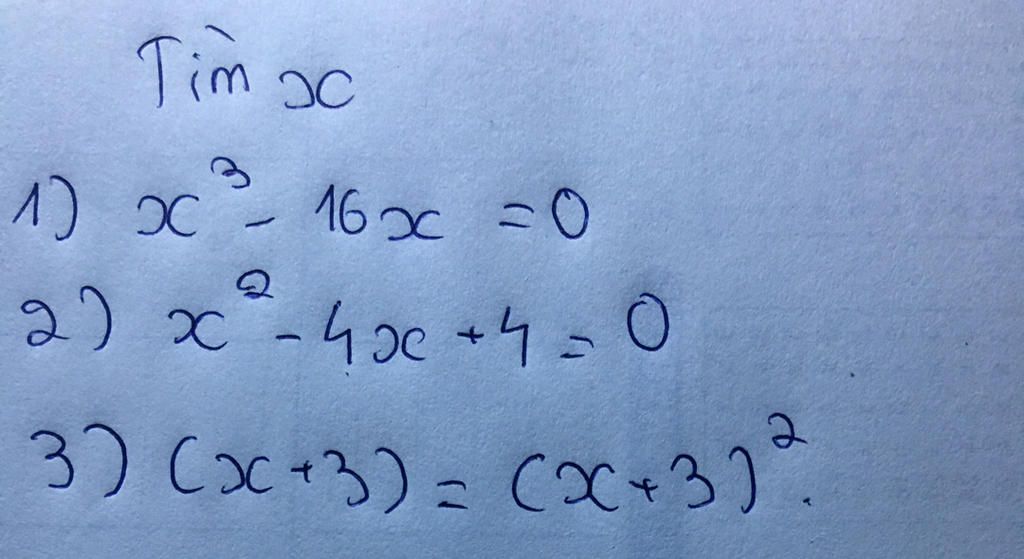 Tìm x
1) x³ - 16x = 0
2) x² - 4x + 4 = 0
3) (x+3) = (x+3)².